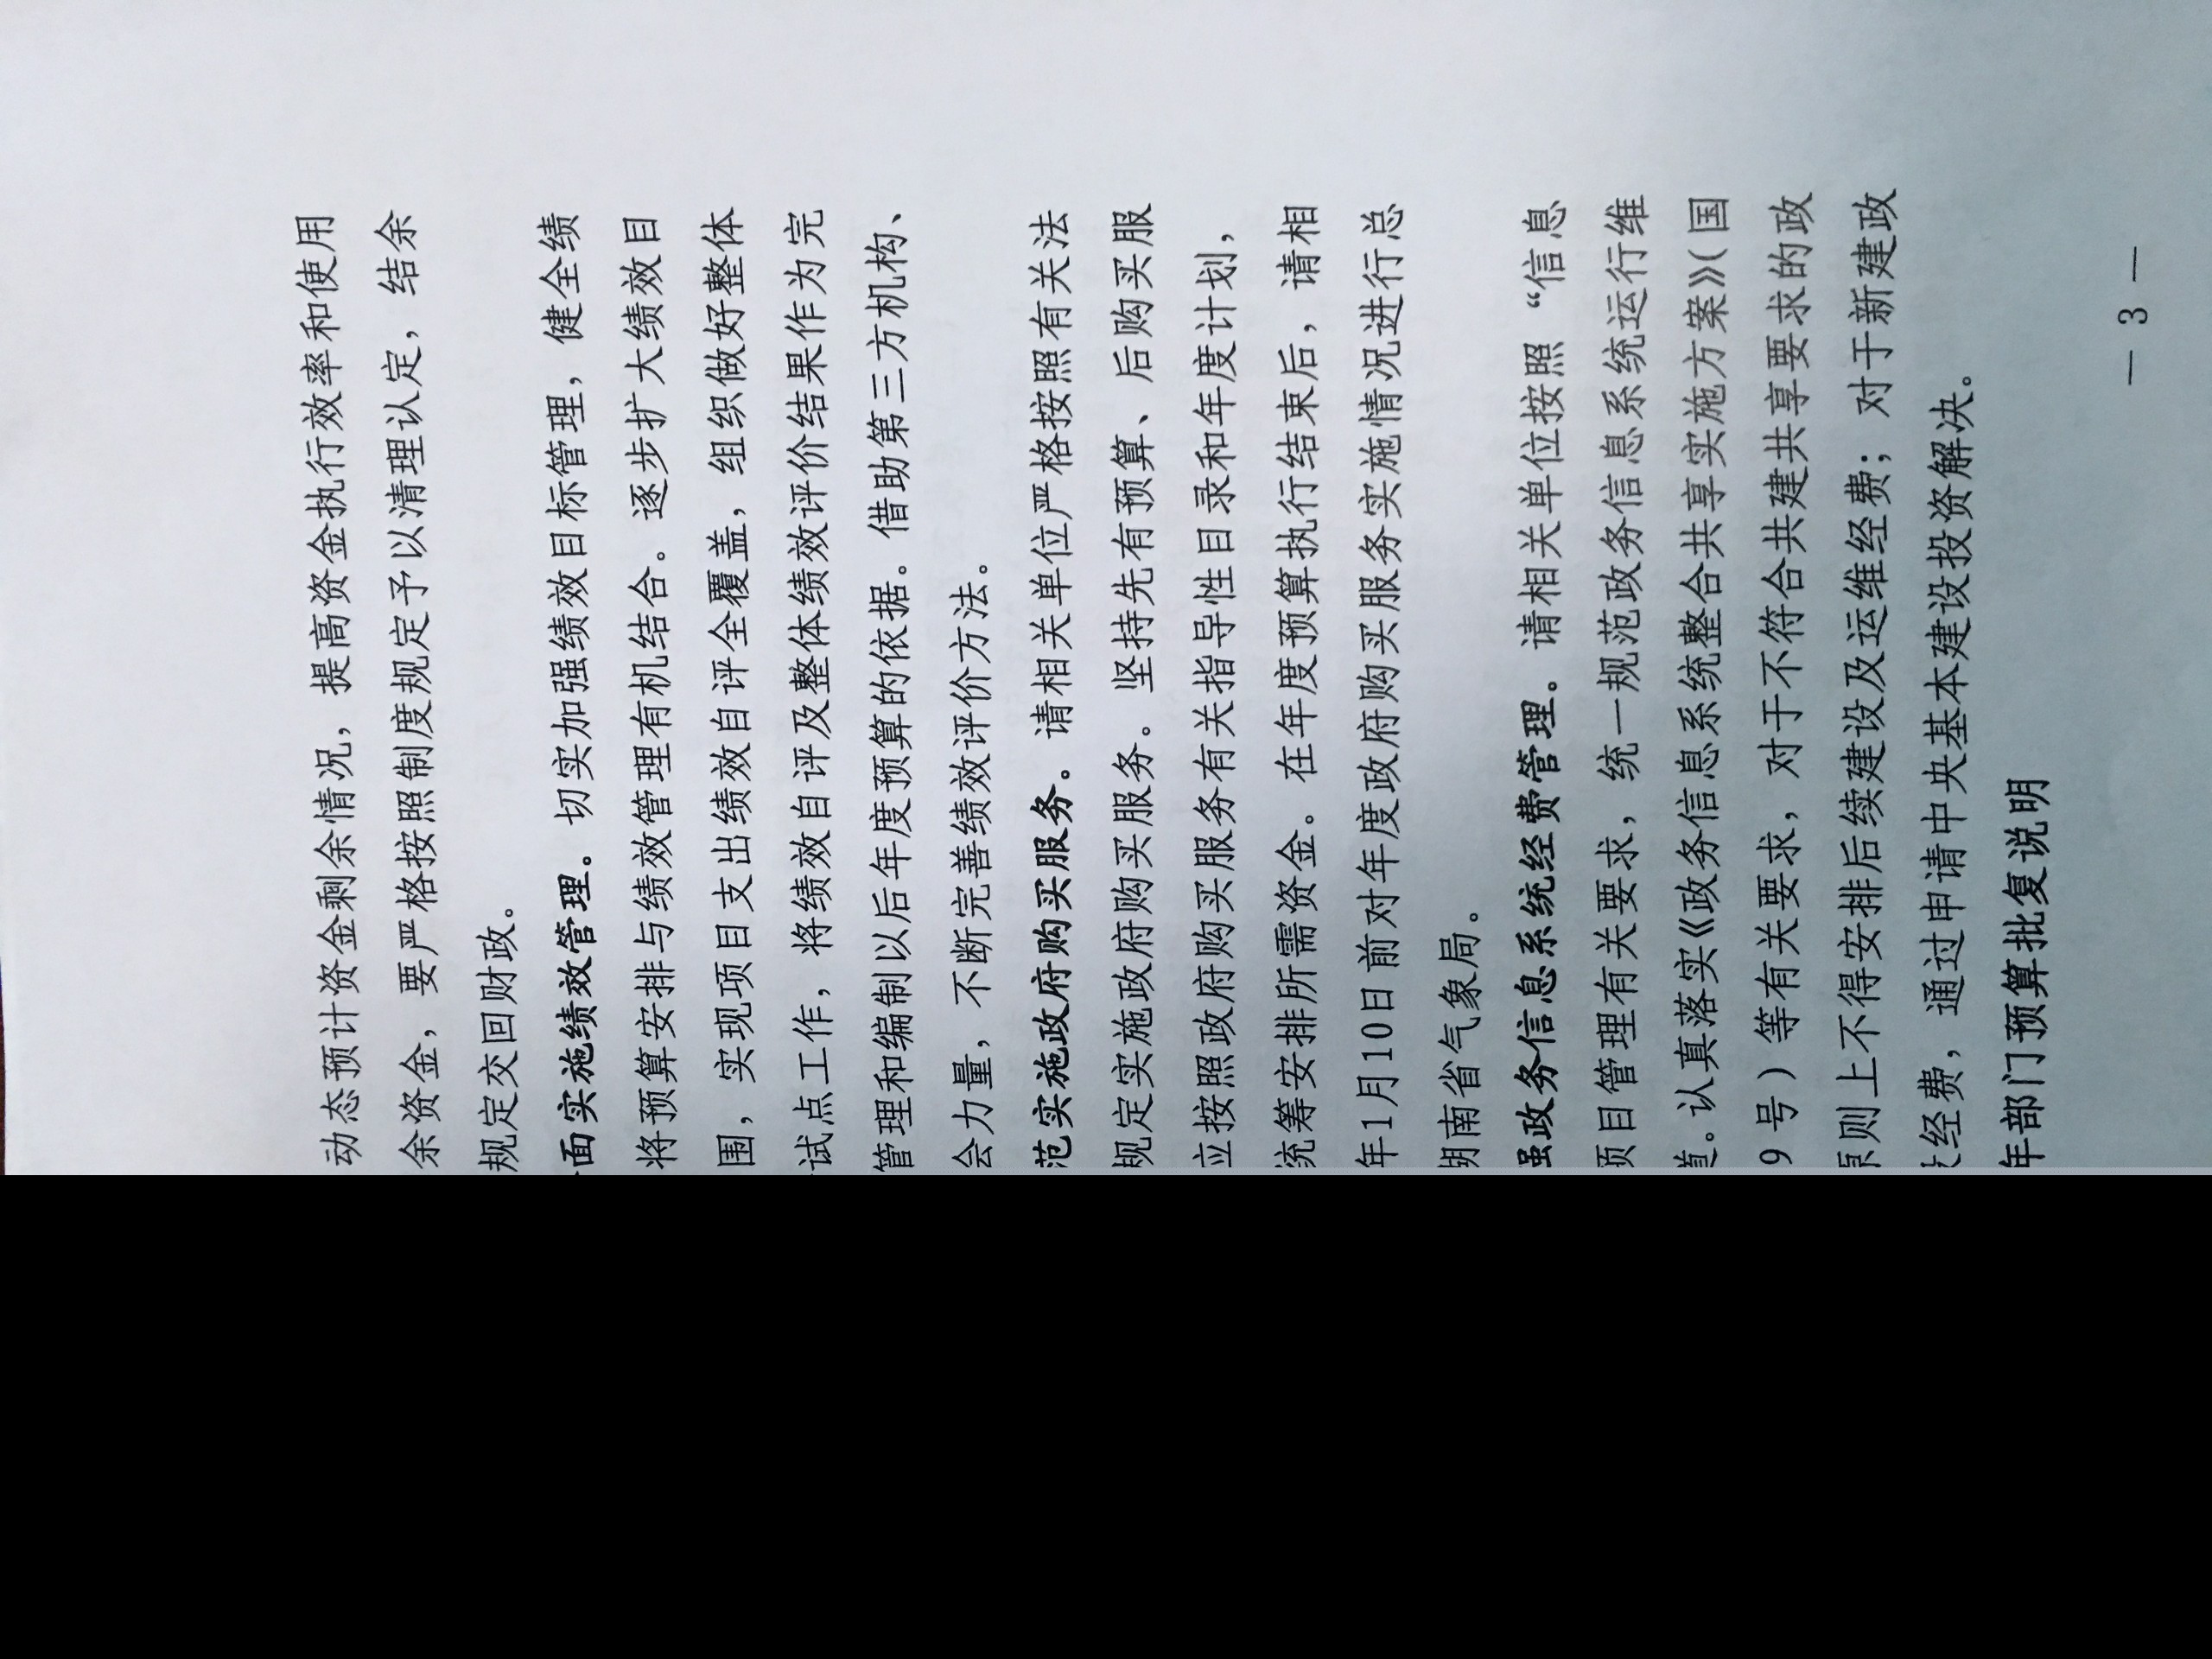 动态预计资金剩余情况，提高资金执行效率和使用
余资金，要严格按照制度规定予以清理认定，结余
规定交回财政。
面实施绩效管理。切实加强绩效目标管理，健全绩
将预算安排与绩效管理有机结合。逐步扩大绩效目
围，实现项目支出绩效自评全覆盖，组织做好整体
试点工作，将绩效自评及整体绩效评价结果作为完
管理和编制以后年度预算的依据。借助第三方机构、
会力量，不断完善绩效评价方法。
范实施政府购买服务。请相关单位严格按照有关法
规定实施政府购买服务。坚持先有预算、后购买服
应按照政府购买服务有关指导性目录和年度计划，
统筹安排所需资金。在年度预算执行结束后，请相
年1月10日前对年度政府购买服务实施情况进行总
南省气象局。
政务信息系统经费管理。请相关单位按照“信息
项目管理有关要求，统一规范政务信息系统运行维
。认真落实《政务信息系统整合共享实施方案》（国
9号）等有关要求，对于不符合共建共享要求的政
则上不得安排后续建设及运维经费；对于新建政
经费，通过申请中央基本建设投资解决。
年部门预算批复说明
— 3 —